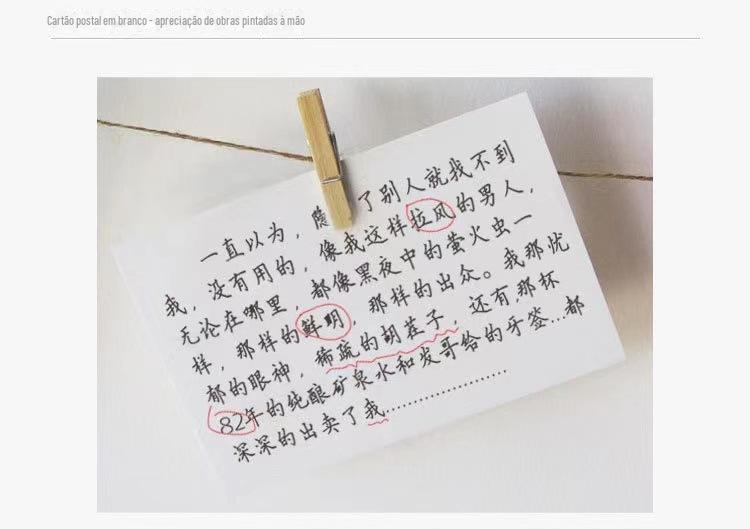 Cartão postal em branco - apreciação de obras pintadas à mão
一直以为，隐 了别人就找不到
我，没有用的，像我这样拉风的男人，
无论在哪里，都像黑夜中的萤火虫一
样，那样的鲜明，那样的出众。我那忧
郁的眼神，稀疏的胡茬子，还有，那杯
82年的纯酿矿泉水和发哥给的牙签...都
深深的出卖了我....................